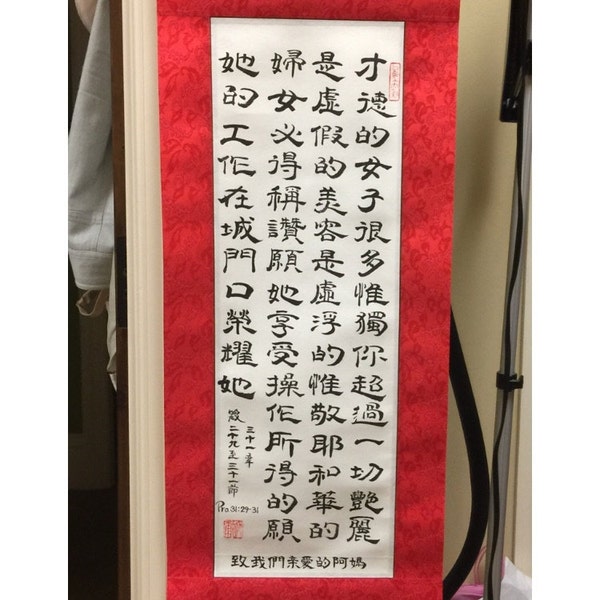 才德的女子很多惟獨你超過一切艷麗
是虛假的美容是虛浮的惟敬耶和華的
婦女必得稱讚願她享受操作所得的願
她的工作在城門口榮耀她
箴
三十一章
二十九至三十一節
Pro 31:29-31
致我們亲愛的阿媽